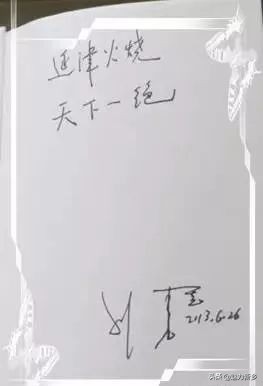 延津火烧
天下一绝
刘震云
2013.6.26
头条@魅力新乡